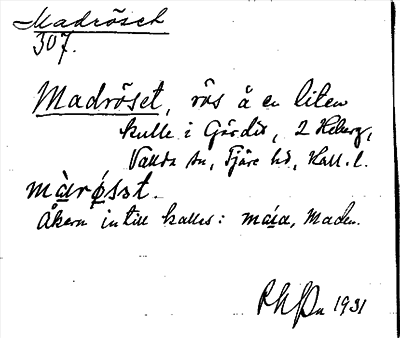 Madrösch
307.
Madröset, rös å en liten
kulle i Gärdid, 2 Heberg,
Vallda sn, Fjäre hd, Hall. l.
màrǿsst.
Åkern intill kallas: máa, Maden.
1931